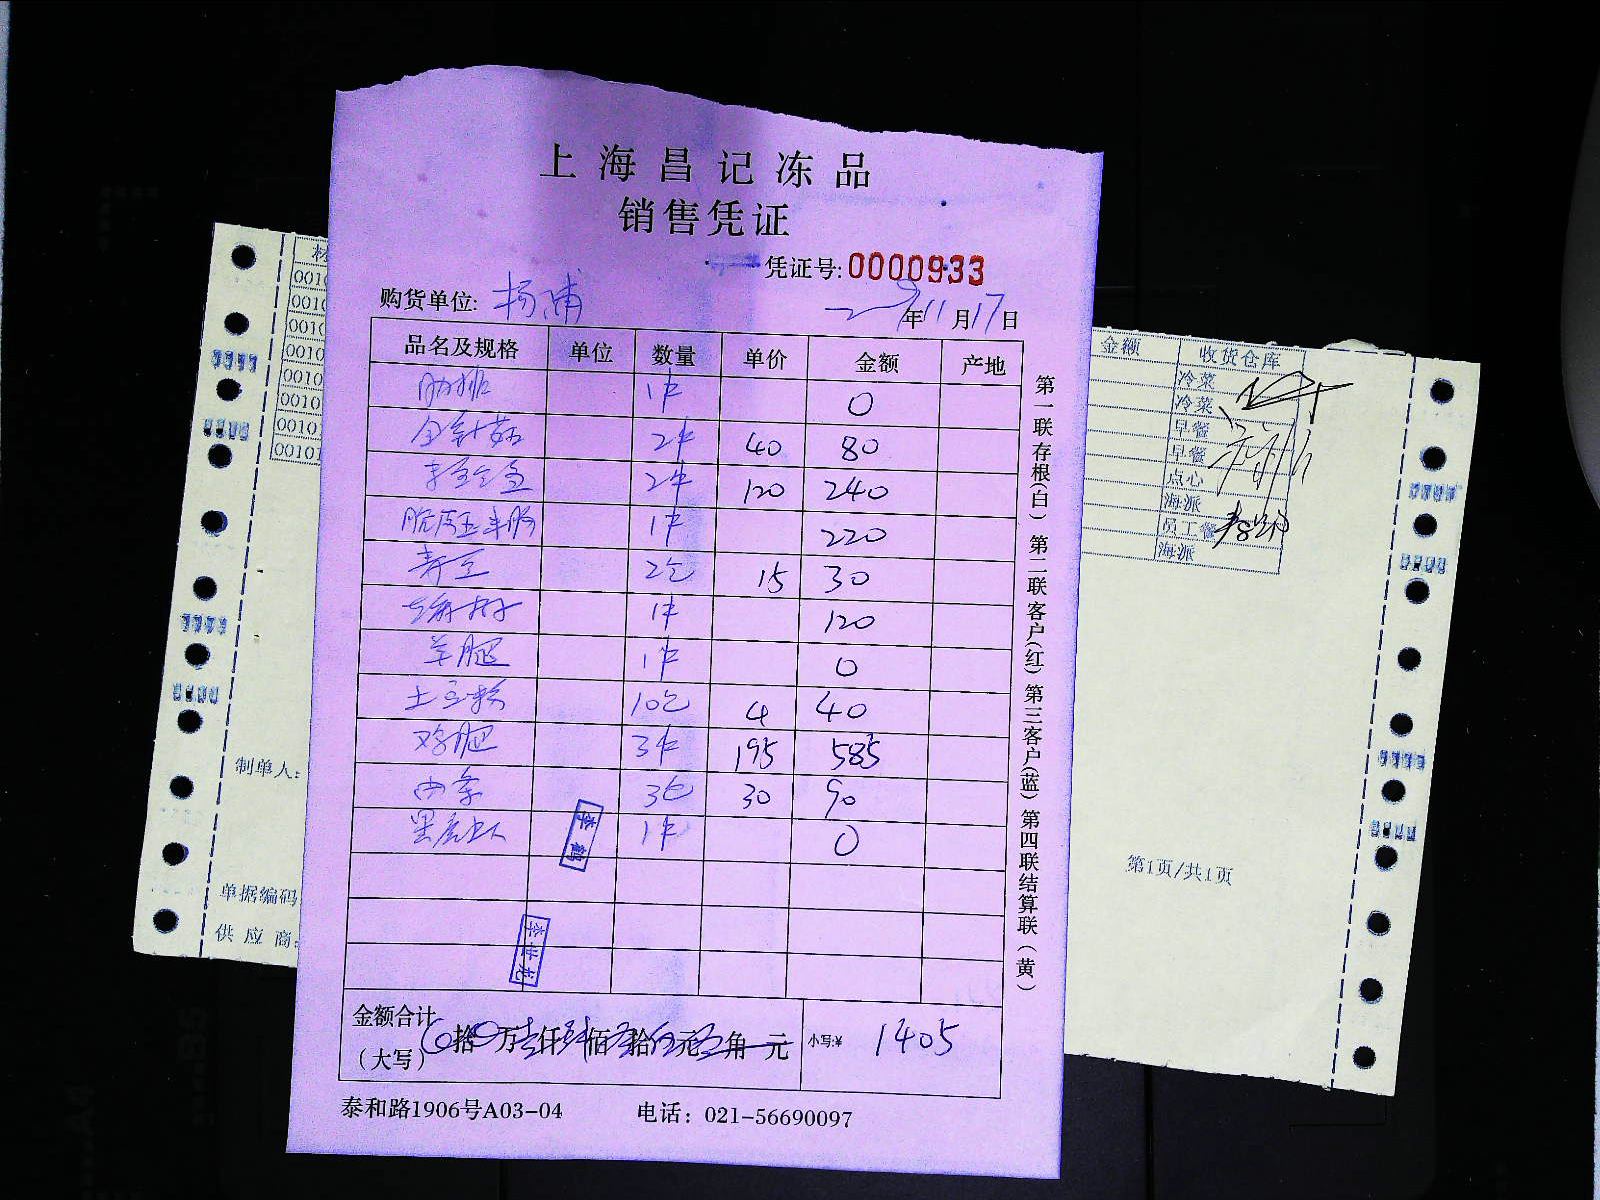 上海昌记冻品
销售凭证
凭证号:0000933
购货单位: 杨浦
年11月17日
品名及规格 单位 数量 单价 金额 产地
肋排 1件 0
金针菇 2件 40 80
2件 120 240
脆皮玉米肠 1件 220
青豆 2包 15 30
1件 120
羊腿 1件 0
土豆粉 10包 4 40
鸡腿 3件 195 585
肉条 3包 30 90
1件 0
李鹤
李世龙
金额合计
(大写) 拾 万 仟 佰 拾 元 角 元 小写:¥ 1405
泰和路1906号A03-04 电话：021-56690097
第一联存根(白) 第二联客户(红) 第三客户(蓝) 第四联结算联(黄)
材
0010
0010
0010
0010
0010
0010
00101
00101
制单人:
单据编码
供应商:
金额 收货仓库
冷菜
冷菜
早餐
早餐
点心
海派
员工餐
海派
第1页/共1页